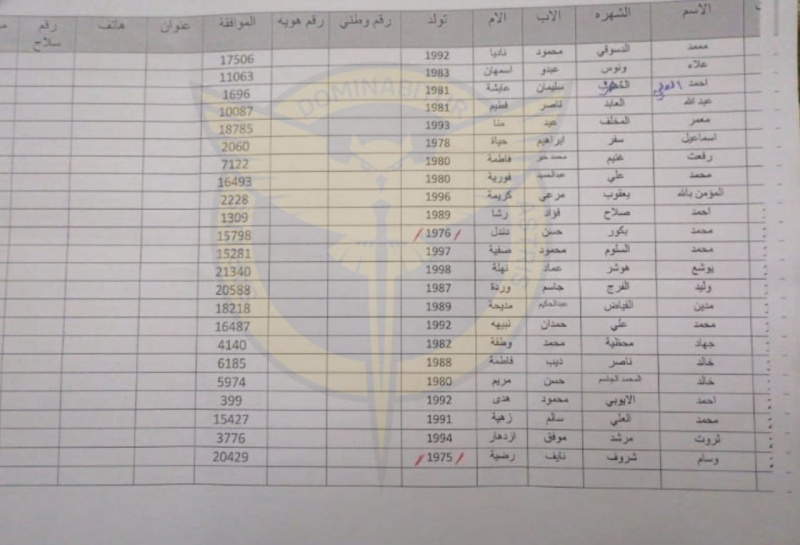 الاسم الشهره الاب الام تولد رقم وطني رقم هويه الموافقة عنوان هاتف رقم سلاح
محمد الدسوقي محمود ناديا 1992 17506
علاء ونوس عبدو اسمهان 1983 11063
احمد العلي سليمان عايشة 1981 1696
عبد الله العابد ناصر فطيم 1981 10087
معمر المخلف عيد منا 1993 18785
اسماعيل سفر ابراهيم حياة 1978 2060
رفعت غنيم محمد خير فاطمة 1980 7122
محمد علي عبدالحميد فورية 1980 16493
المؤمن بالله يعقوب مرعي كريمة 1996 2228
احمد صلاح فؤاد رشا 1989 1309
محمد بكور حسن دندل / 1976 / 15798
محمد السلوم محمود صفية 1997 15281
يوشع هوشر عماد نهلة 1998 21340
وليد الفرج جاسم وردة 1987 20588
مدين الفياض عبدالحكيم مديحة 1989 18218
محمد علي حمدان نبيهه 1992 16487
جهاد محظية محمد وطفة 1982 4140
خالد ناصر ديب فاطمة 1988 6185
خالد المحمد الجاسم حسن مريم 1980 5974
احمد الايوبي محمود هدى 1992 399
محمد العلي سالم زهية 1991 15427
ثروت مرشد موفق ازدهار 1994 3776
وسام شروف نايف رضية / 1975 / 20429